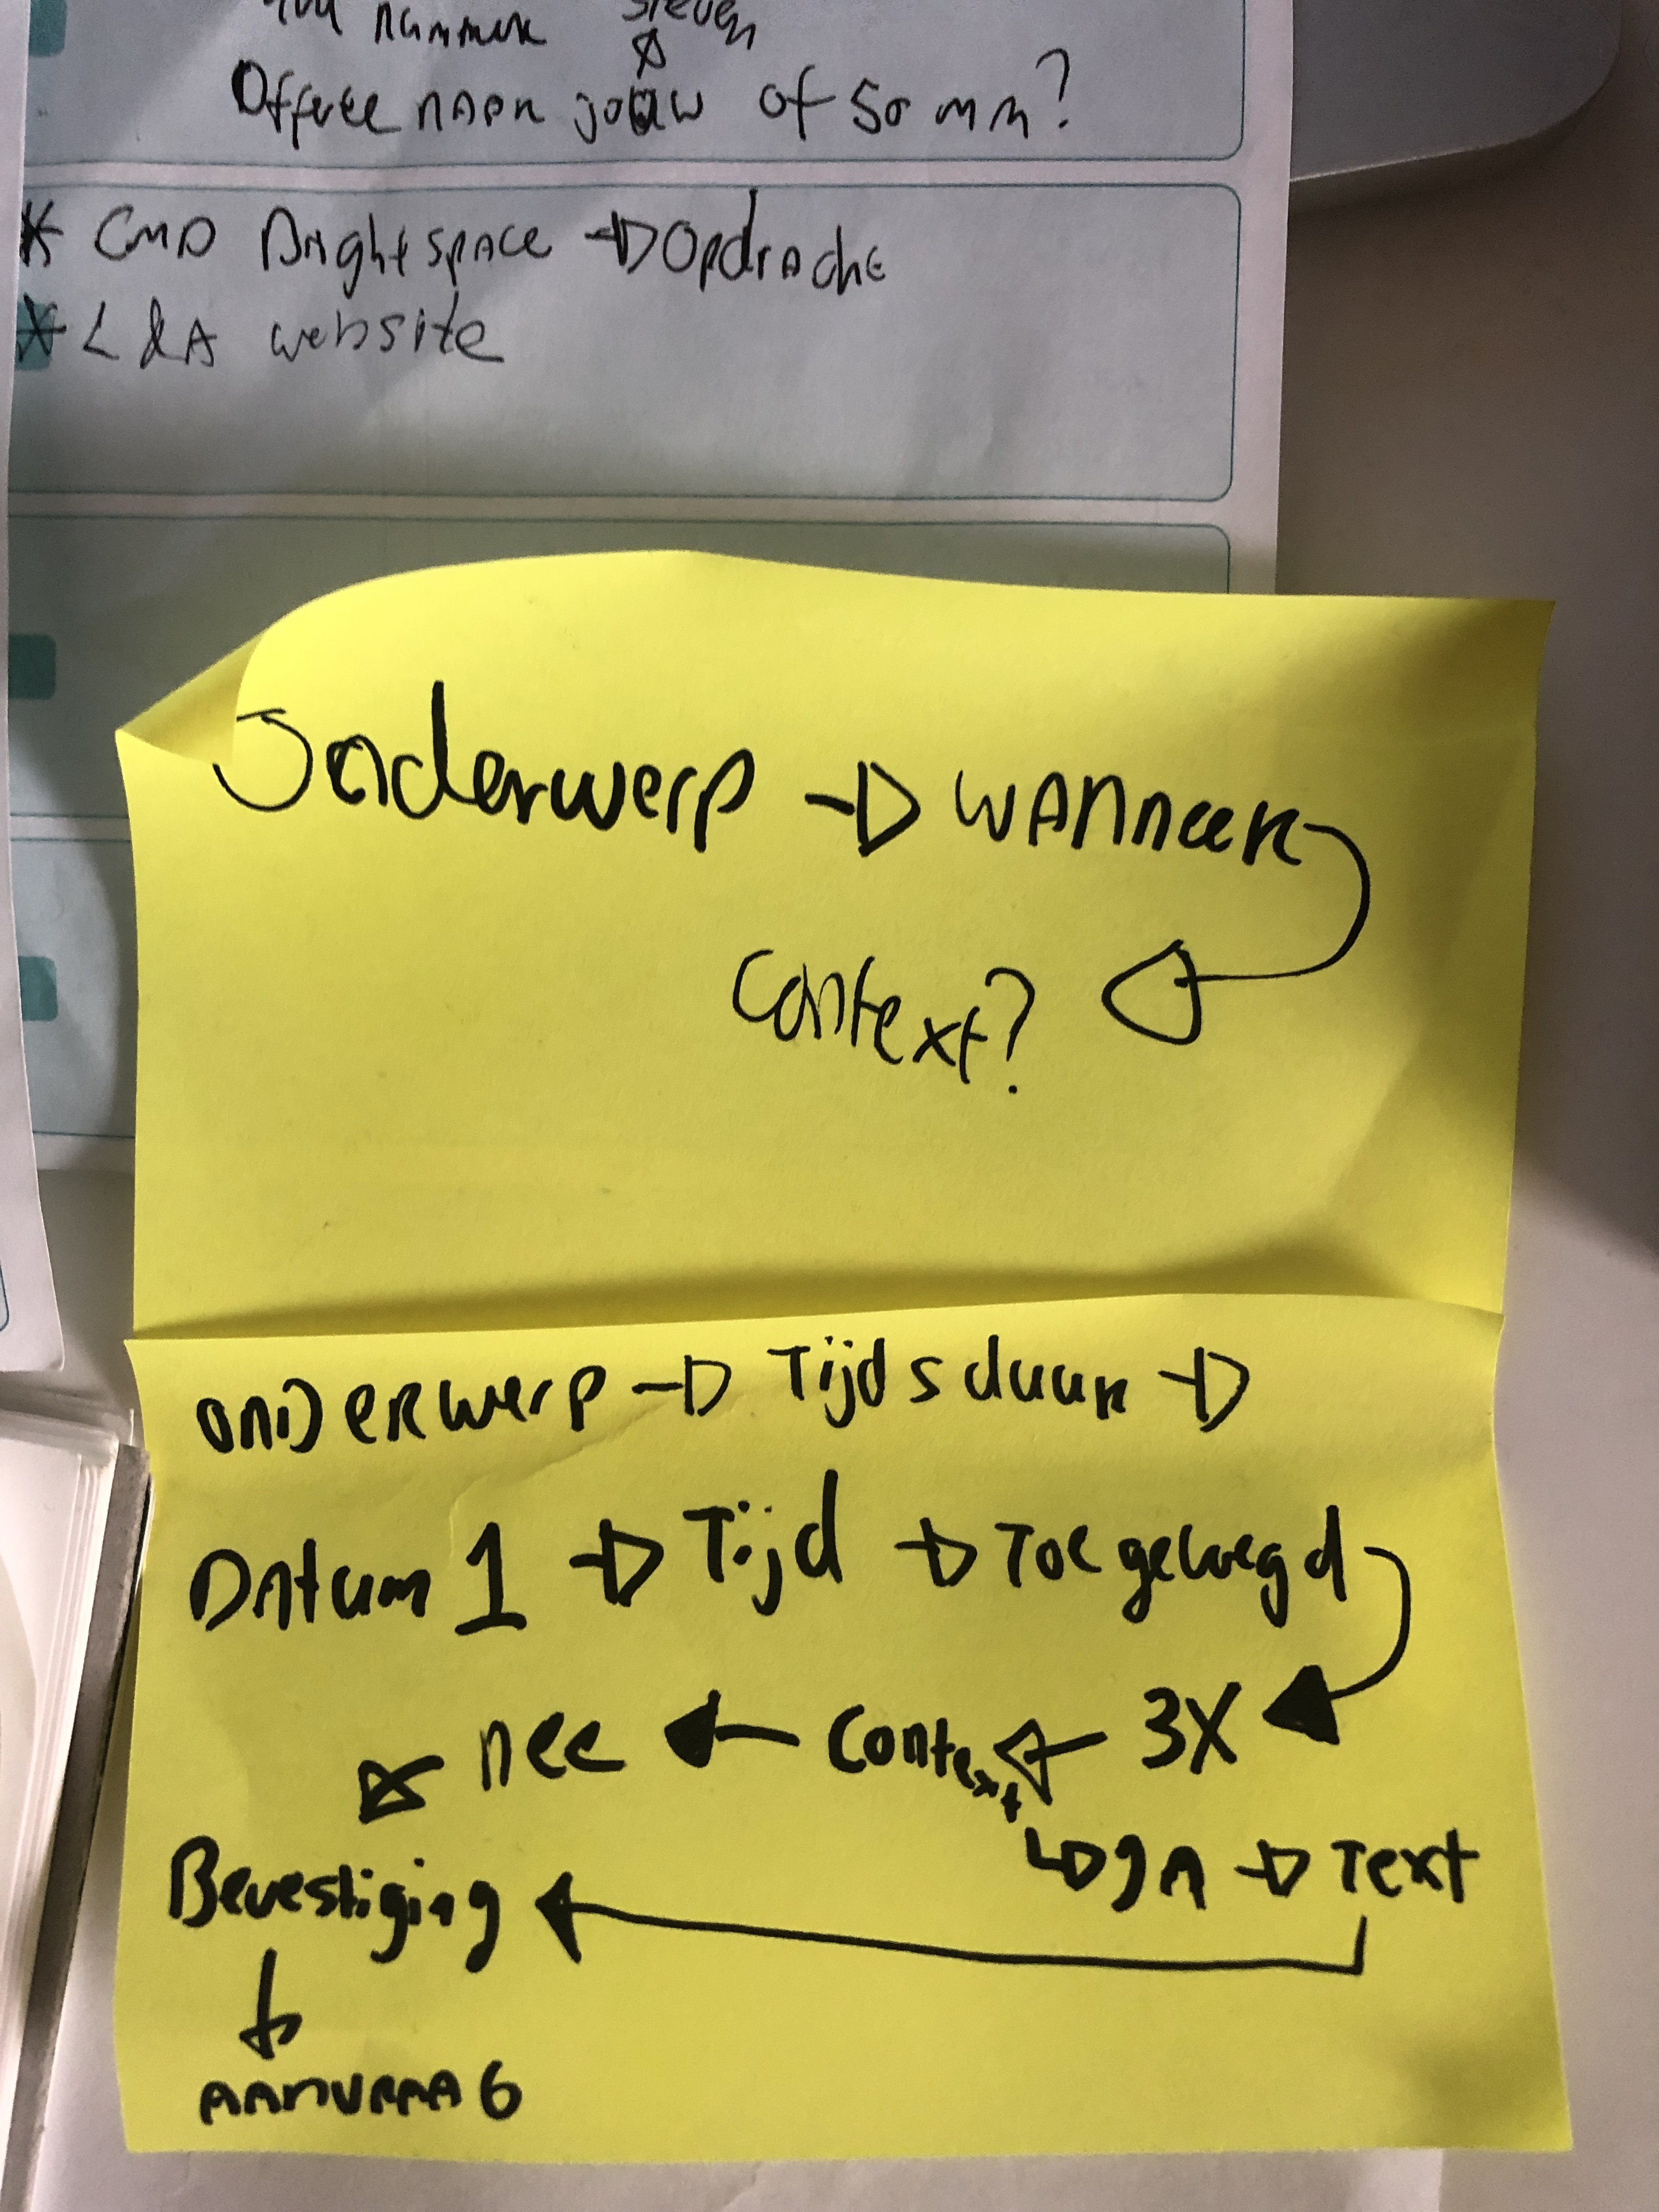 nummer Steven
Offerte naar jouw of 50 mm?
* CMD Brightspace → Opdracht
* L&A website
Onderwerp → wanneer
Context?
onderwerp → Tijdsduur →
Datum 1 → Tijd → Toegevoegd
nee ← Context ← 3X
↳ JA → Text
Bevestiging ←
↓
AANVRAAG